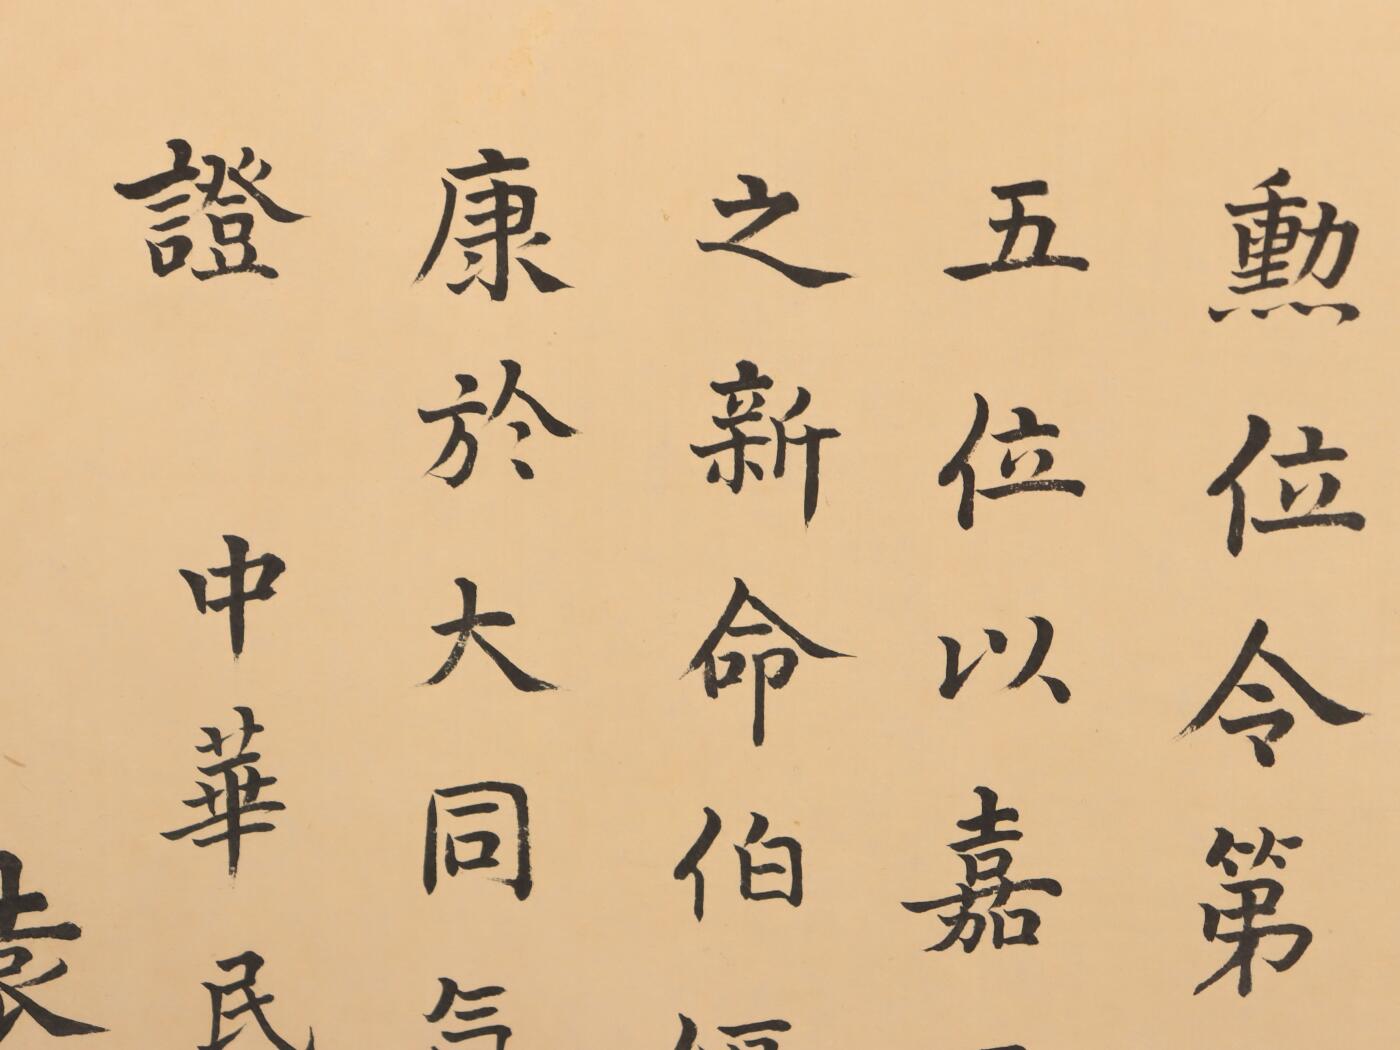 勲位令第
五位以嘉
之新命伯
康於大同
證
中華民
袁